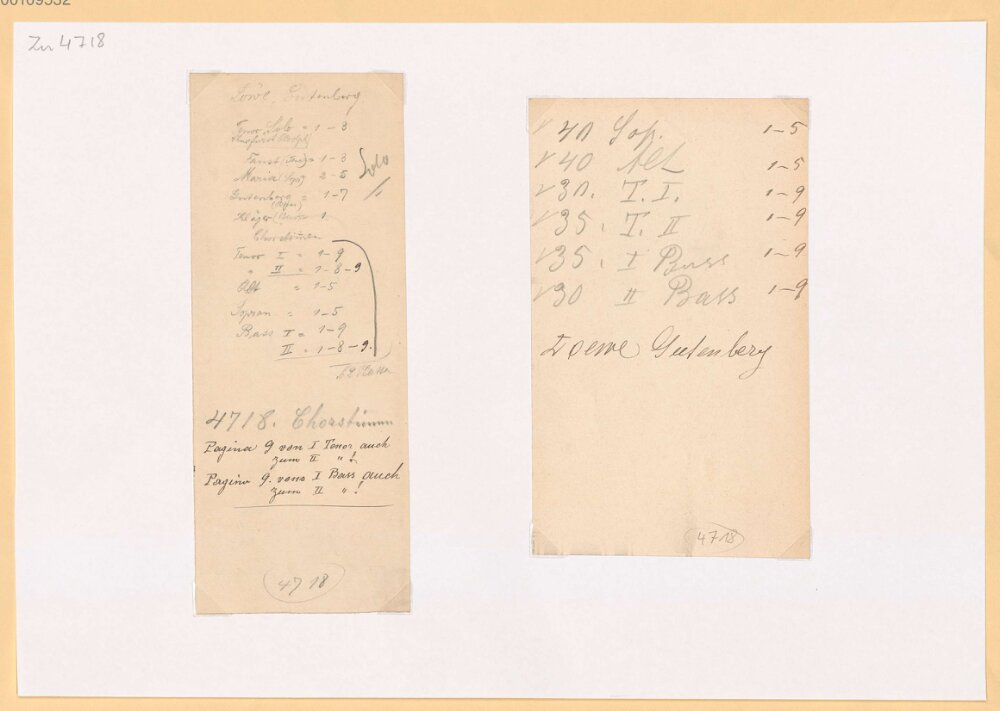 00109532
Zu 4718
Löwe, Gutenberg
Tenor Solo = 1-3
Faust = 1-3
Maria (Sopr) 2-5
Solo
Gutenberg = 1-7
Kläger 1
Chorstimmen
Tenor I = 1-9
" II = 1-8-9
Alt = 1-5
Sopran = 1-5
Bass I = 1-9
II = 1-8-9.
4718. Chorstimmen
Pagina 9 von I Tenor auch
zum II "!
Pagina 9. vom I Bass auch
zum II "!
4718
40 Sop. 1-5
√ 40 Alt 1-5
√ 30. T. I. 1-9
√ 35. T. II 1-9
√ 35. I Bass 1-9
√ 30 II Bass 1-9
Loewe Gutenberg
4718